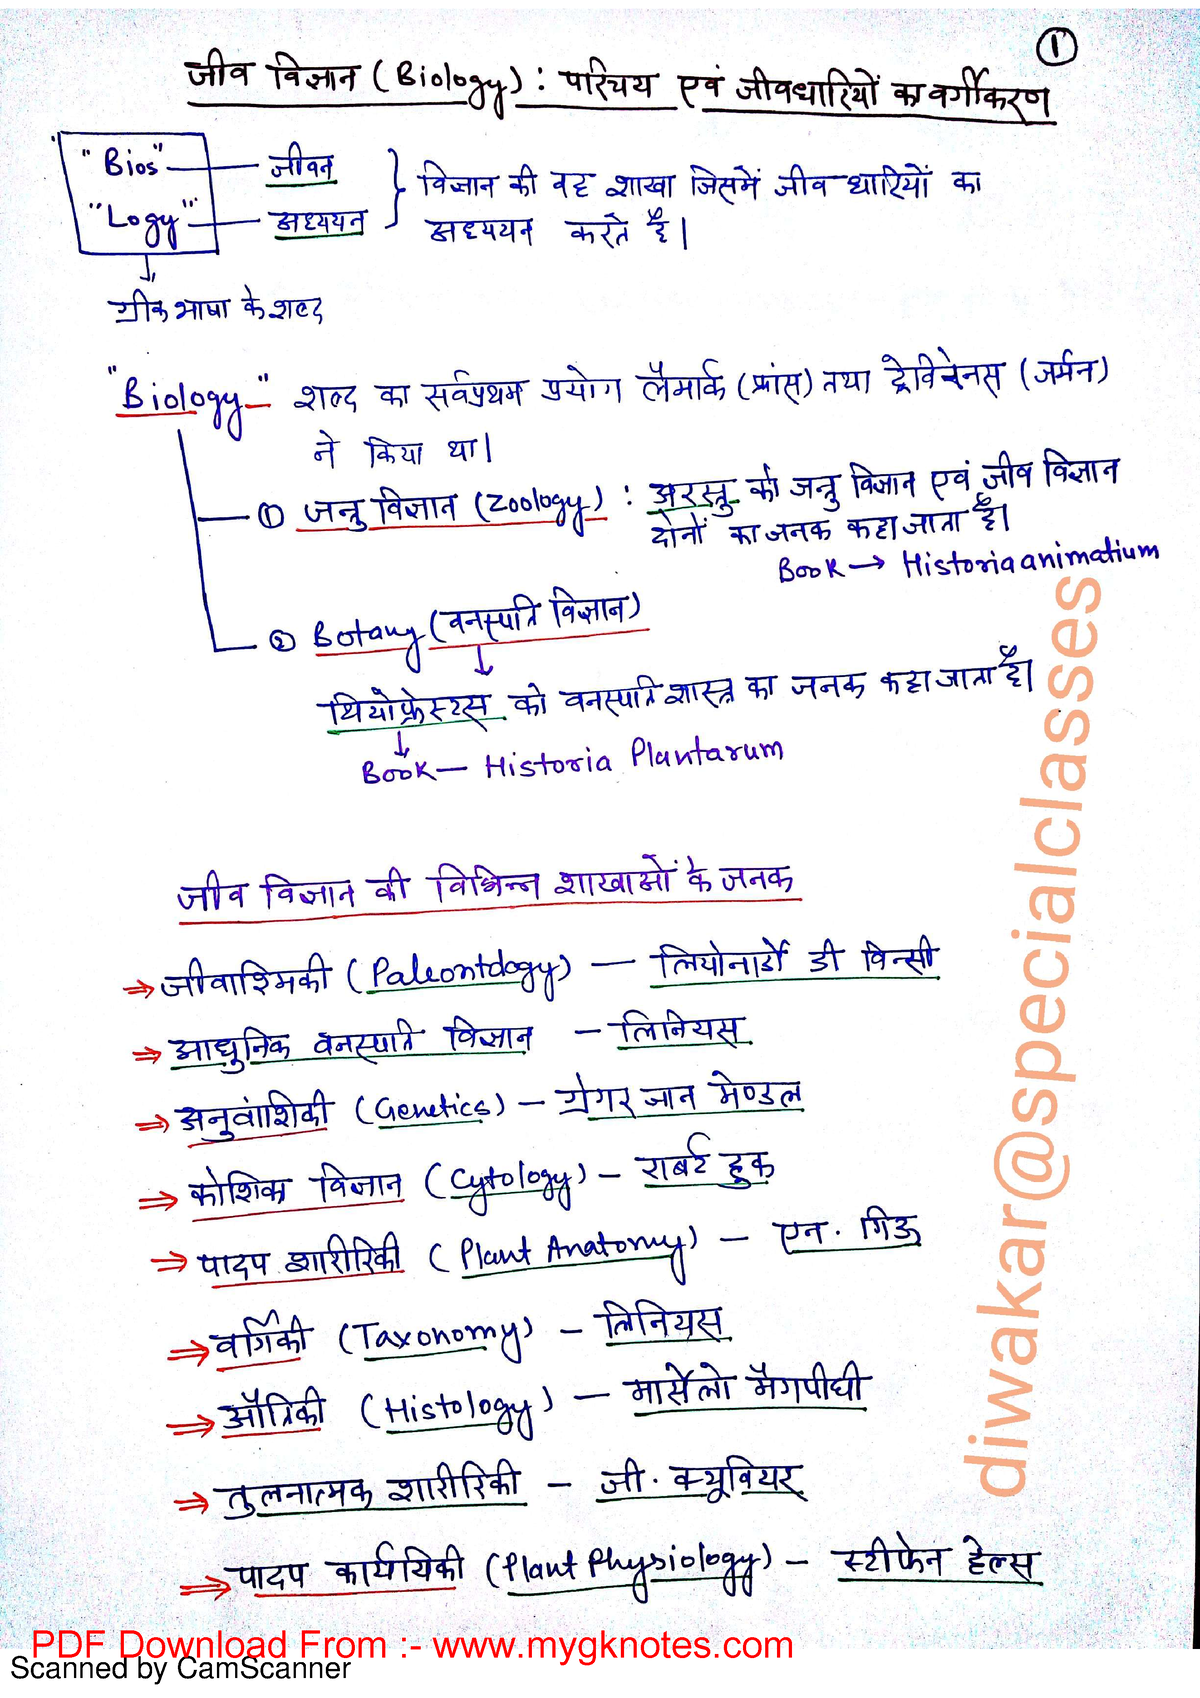 1
जीव विज्ञान (Biology) : परिचय एवं जीवधारियों का वर्गीकरण
"Bios" — जीवन
"Logy" — अध्ययन
विज्ञान की वह शाखा जिसमें जीव धारियों का
अध्ययन करते है।
ग्रीक भाषा के शब्द
"Biology" शब्द का सर्वप्रथम प्रयोग लैमार्क (फ्रांस) तथा ट्रेविरेनस (जर्मन)
ने किया था।
① जन्तु विज्ञान (Zoology) : अरस्तु को जन्तु विज्ञान एवं जीव विज्ञान
दोनों का जनक कहा जाता है।
Book → Historia animatium
② Botany (वनस्पति विज्ञान)
थियोफ्रेस्टस को वनस्पति शास्त्र का जनक कहा जाता है।
Book — Historia Plantarum
जीव विज्ञान की विभिन्न शाखाओं के जनक
⇒ जीवाश्मिकी (Paleontology) — लियोनार्डो डी विन्सी
⇒ आधुनिक वनस्पति विज्ञान — लिनियस
⇒ अनुवांशिकी (Genetics) — ग्रेगर जान मेण्डल
⇒ कोशिका विज्ञान (Cytology) — राबर्ट हुक
⇒ पादप शारीरिकी (Plant Anatomy) — एन. गिऊ
⇒ वर्गिकी (Taxonomy) — लिनियस
⇒ औत्रिकी (Histology) — मार्सेलो मैगपीघी
⇒ तुलनात्मक शारीरिकी — जी. क्यूवियर
⇒ पादप कार्ययिकी (Plant Physiology) — स्टीफेन हेल्स
diwakar@specialclasses
PDF Download From :- www.mygknotes.com
Scanned by CamScanner